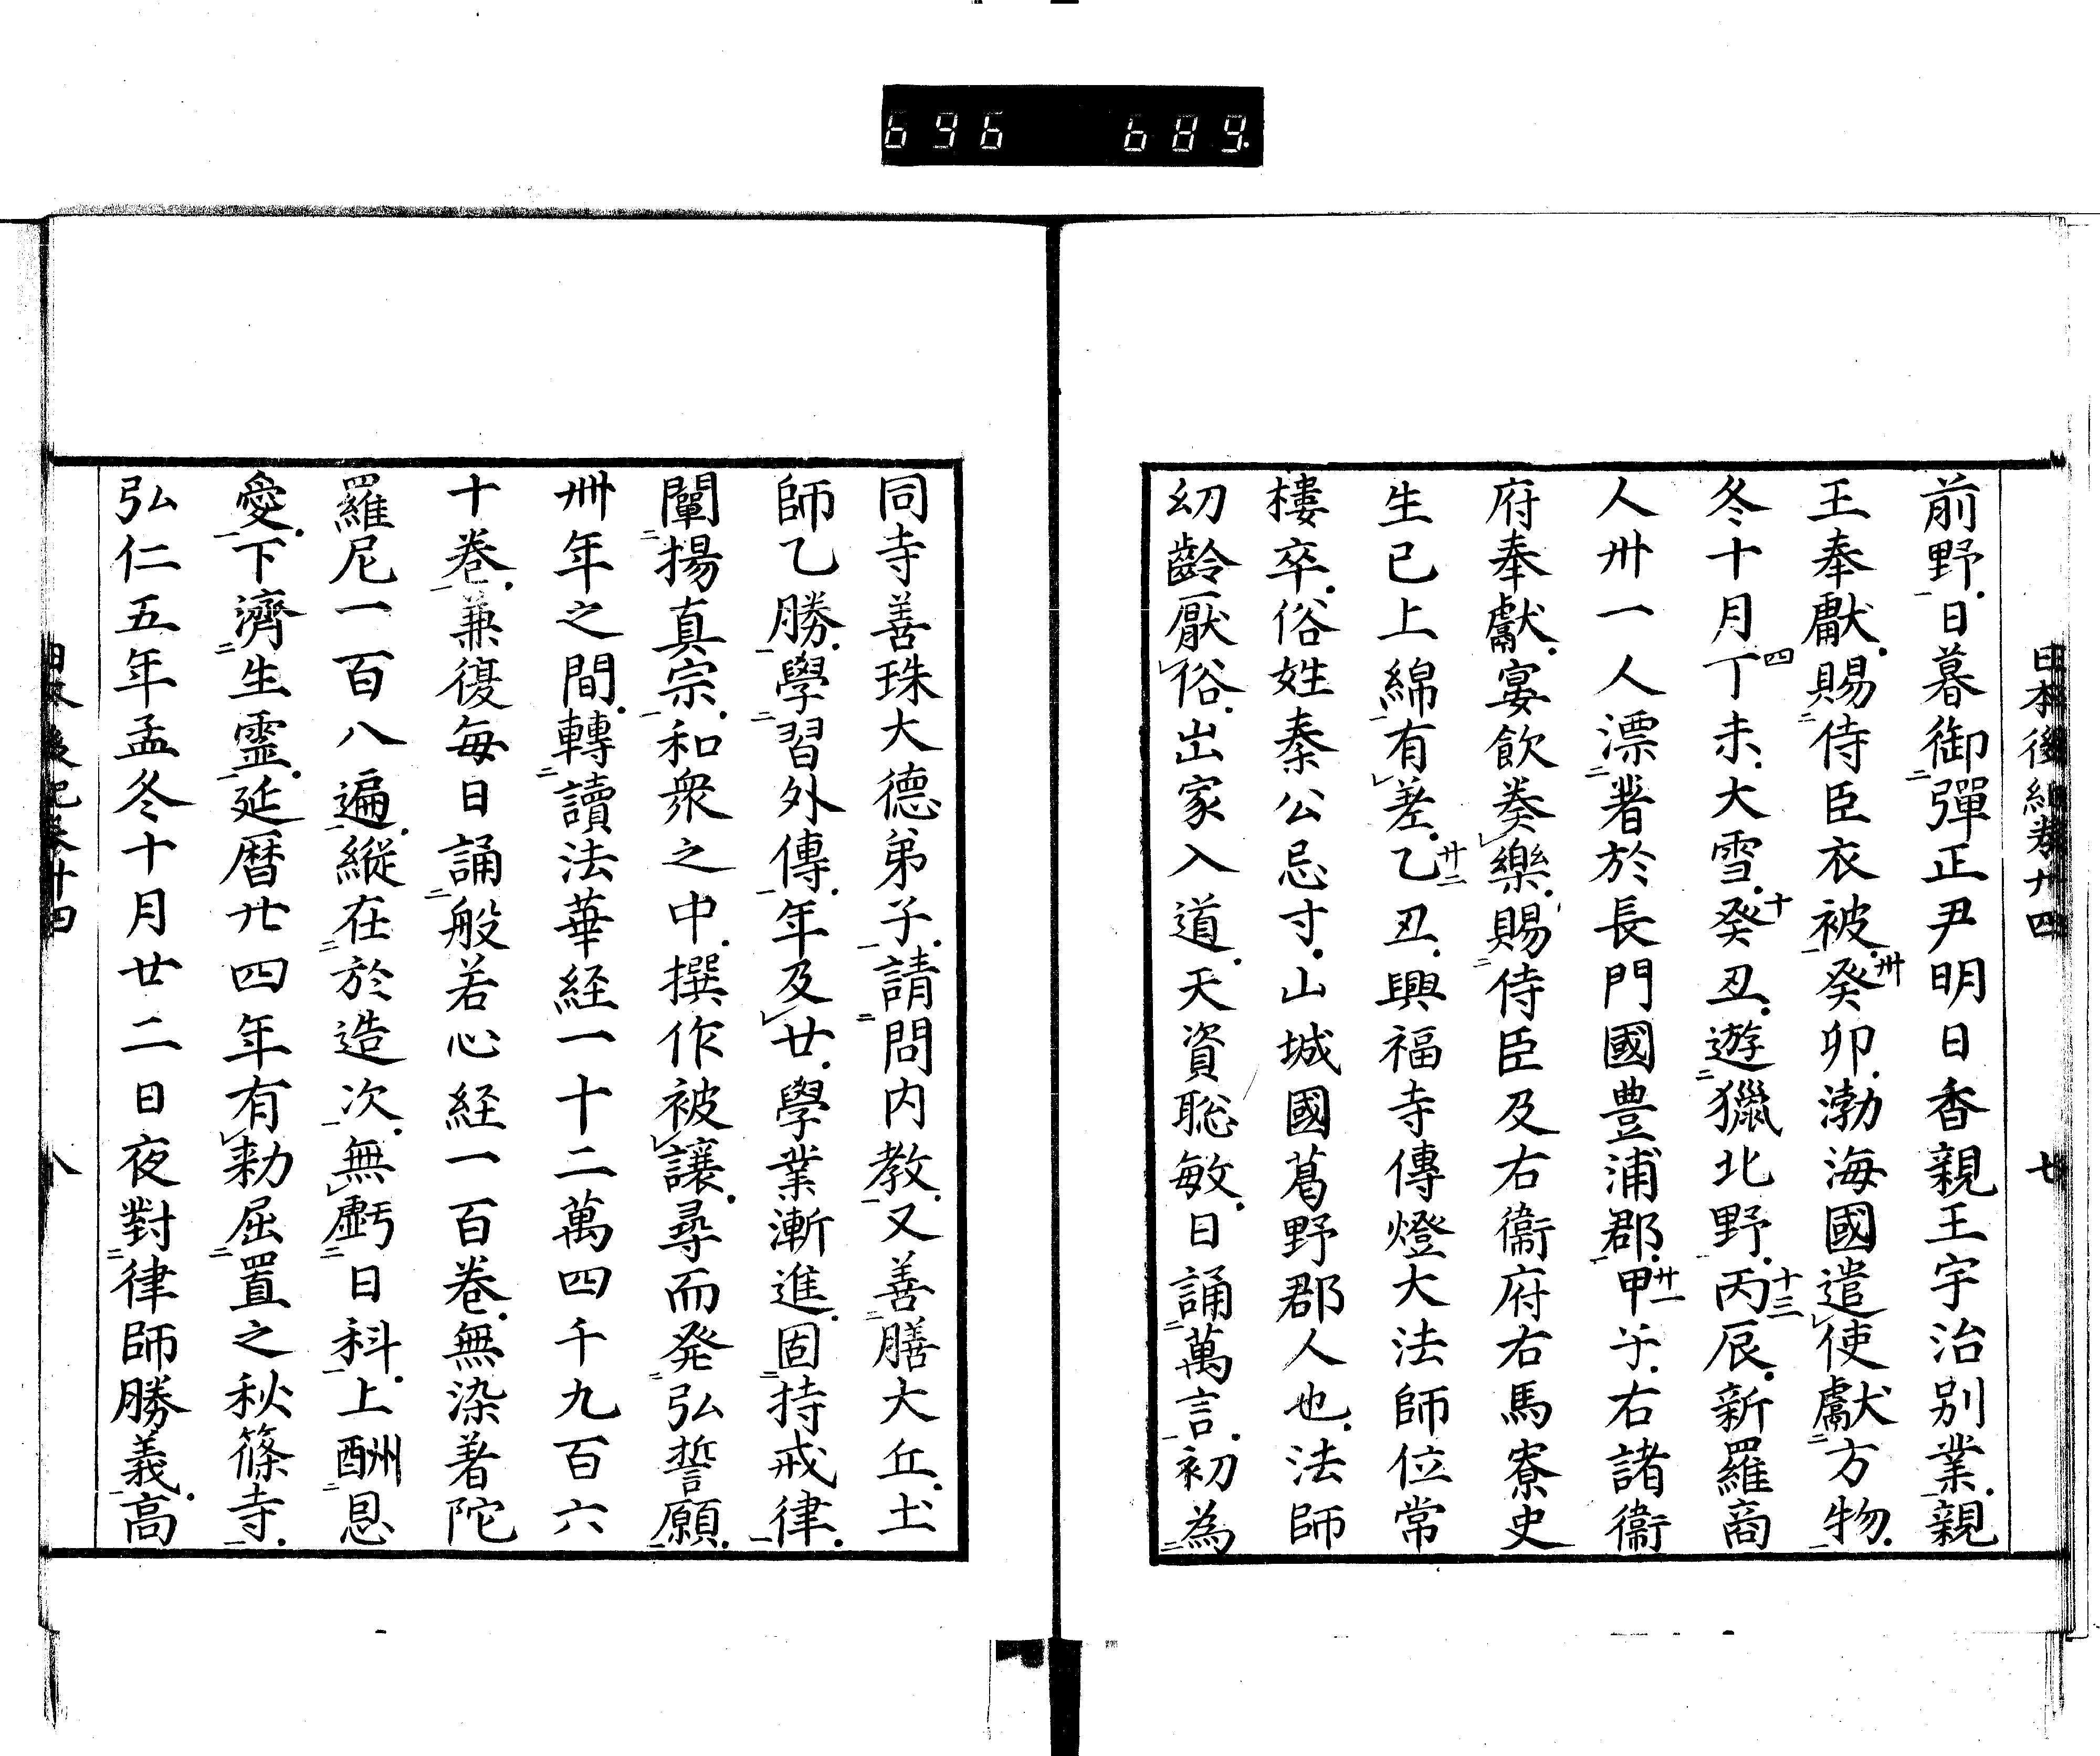 696 689
日本後紀卷廿四 七
前野日暮御彈正尹明日香親王宇治別業親
王奉獻賜侍臣衣被癸卯渤海國遣使獻方物
冬十月丁未大雪癸丑遊獵北野丙辰新羅商
人卅一人漂著於長門國豊浦郡甲子右諸衞
府奉獻宴飲奏樂賜侍臣及右衞府右馬寮史
生已上綿有差乙丑興福寺傳燈大法師位常
樓卒俗姓秦公忌寸山城國葛野郡人也法師
幼齡厭俗出家入道天資聡敏日誦萬言初為
同寺善珠大德弟子請問内教又善膳大丘土
師乙勝學習外傳年及廿學業漸進固持戒律
闡揚真宗和衆之中撰作被讓尋而発弘誓願
卌年之間轉讀法華経一十二萬四千九百六
十卷兼復毎日誦般若心経一百卷無染著陀
羅尼一百八遍縦在於造次無虧日科上酬恩
愛下濟生霊延暦廿四年有勅屈置之秋篠寺
弘仁五年孟冬十月廿二日夜對律師勝義高
日本後紀卷廿四 八